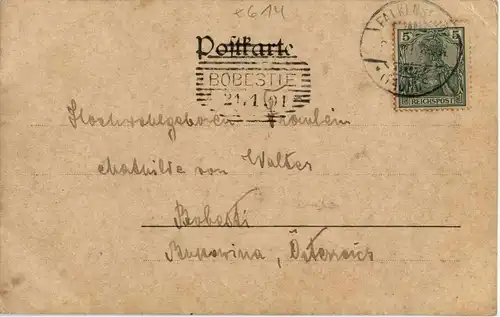 x614
Postkarte
BOBESTIE
21.1.01
5
REICHSPOST
Hochwohlgeboren Fräulein
Mathilde von Walter
Bobesti
Bukowina, Österreich